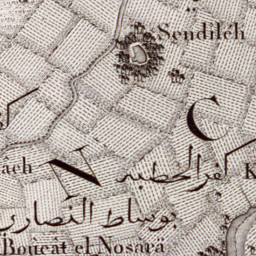 Sendiléh
N C
ách كفر الحطبه K
بوساط النصارى
Boúcât el Nosará